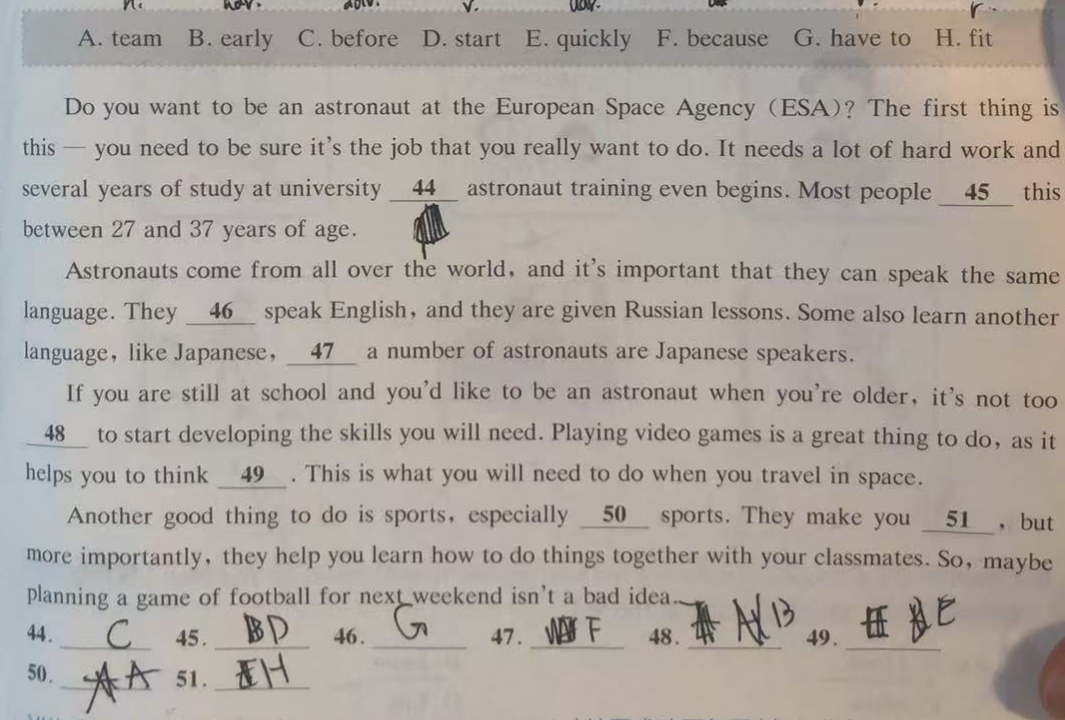 n. v. adv.
A. team B. early C. before D. start E. quickly F. because G. have to H. fit
Do you want to be an astronaut at the European Space Agency (ESA)? The first thing is
this — you need to be sure it's the job that you really want to do. It needs a lot of hard work and
several years of study at university 44 astronaut training even begins. Most people 45 this
between 27 and 37 years of age.
Astronauts come from all over the world, and it's important that they can speak the same
language. They 46 speak English, and they are given Russian lessons. Some also learn another
language, like Japanese, 47 a number of astronauts are Japanese speakers.
If you are still at school and you'd like to be an astronaut when you're older, it's not too
48 to start developing the skills you will need. Playing video games is a great thing to do, as it
helps you to think 49 . This is what you will need to do when you travel in space.
Another good thing to do is sports, especially 50 sports. They make you 51 , but
more importantly, they help you learn how to do things together with your classmates. So, maybe
planning a game of football for next weekend isn't a bad idea.
44. C 45. D 46. G 47. F 48. B 49. E
50. A 51. H